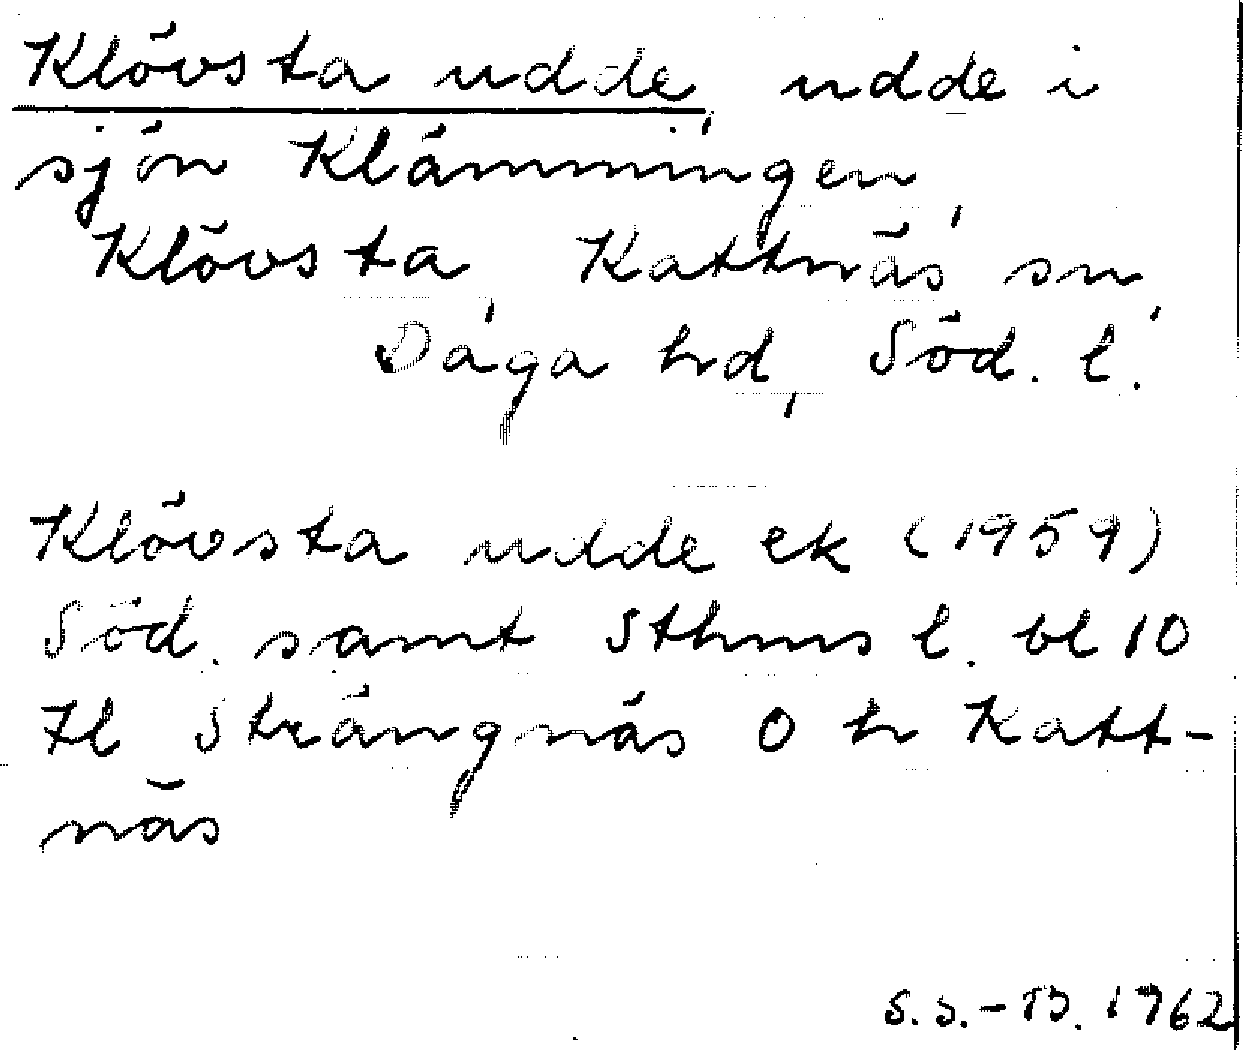 Klövsta udde, udde i
sjön Klämmingen,
Klövsta, Kattnäs sn,
Daga hd, Söd. l.
Klövsta udde ek (1959)
Söd. samt Sthms l. bl 10
Il Strängnäs O h Katt-
näs
S.S.-B. 1962